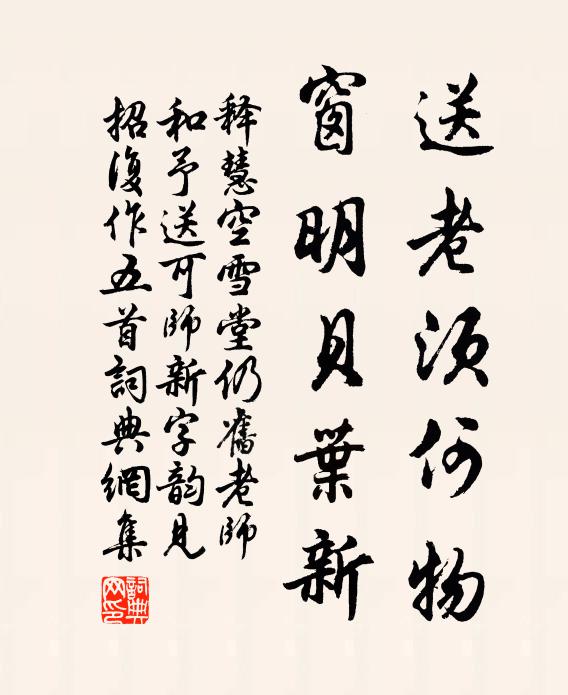 送老須何物
窗明貝葉新
释慧空雪堂仍舊老師
和予送可師新字韵見
招復作五首詞典網集